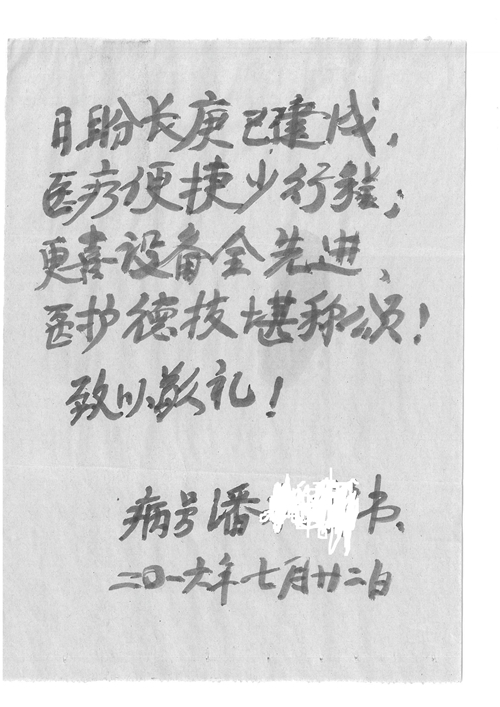 日盼长庚已建成,
医疗便捷少行程;
更喜设备全先进、
医护德技堪称颂!
致以敬礼!
病号潘 书、
二〇一六年七月廿二日